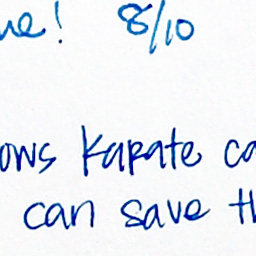 ne! 8/10
ows Karate ca
can save th